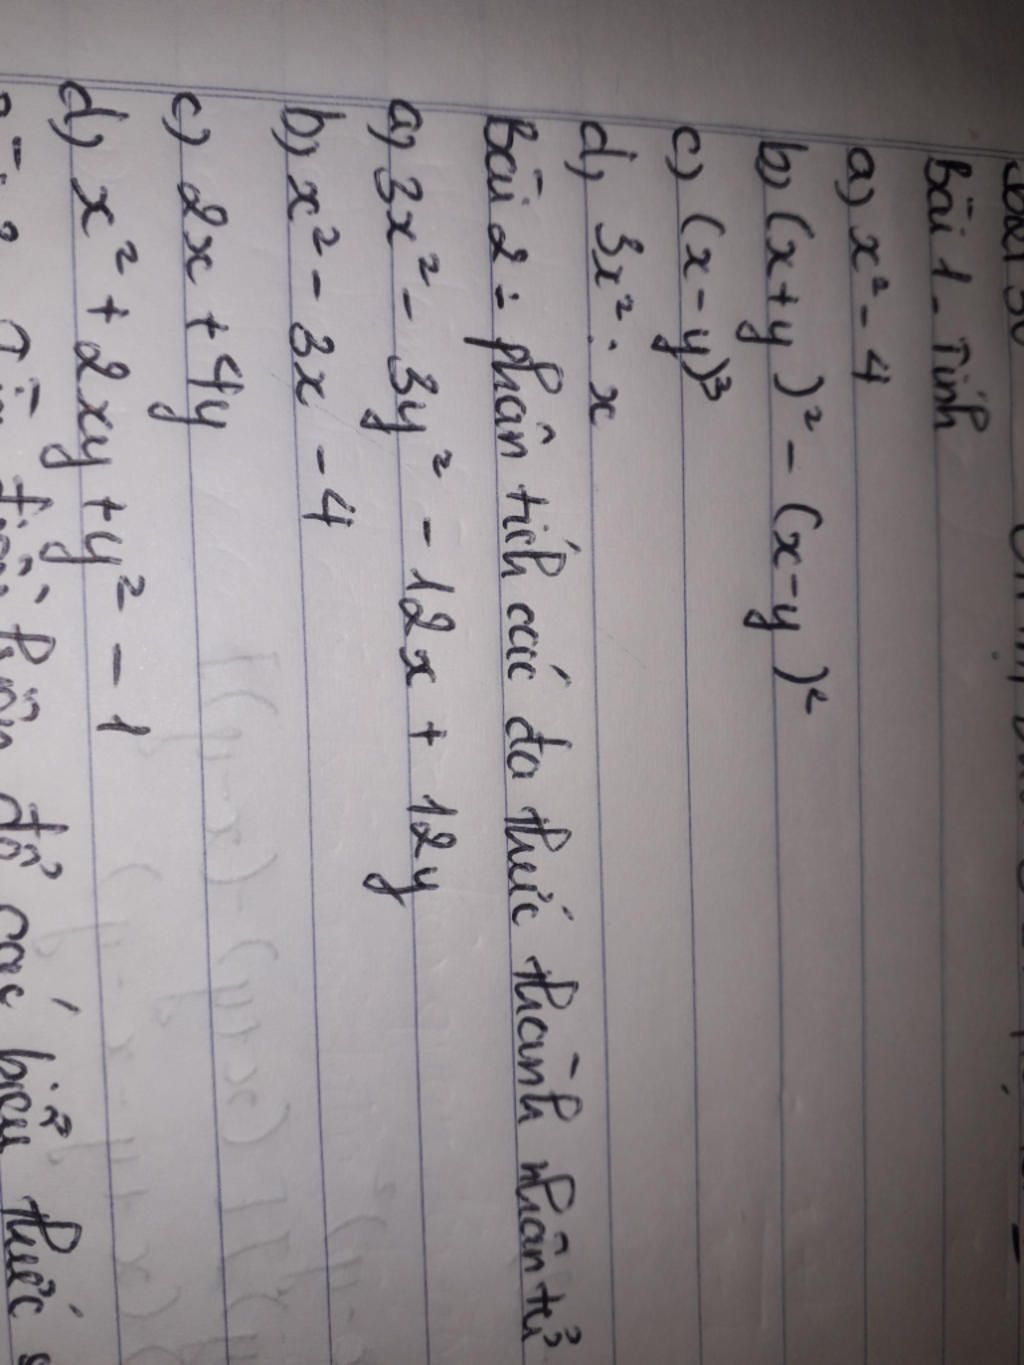 Bài 1 - Tính
a) x² - 4
b) (x+y)² - (x-y)²
c) (x-y)³
d) 3x² : x
Bài 2 : phân tích các đa thức thành nhân tử
a) 3x² - 3y² - 12x + 12y
b) x² - 3x - 4
c) 2x + 4y
d) x² + 2xy + y² - 1
các biểu thức